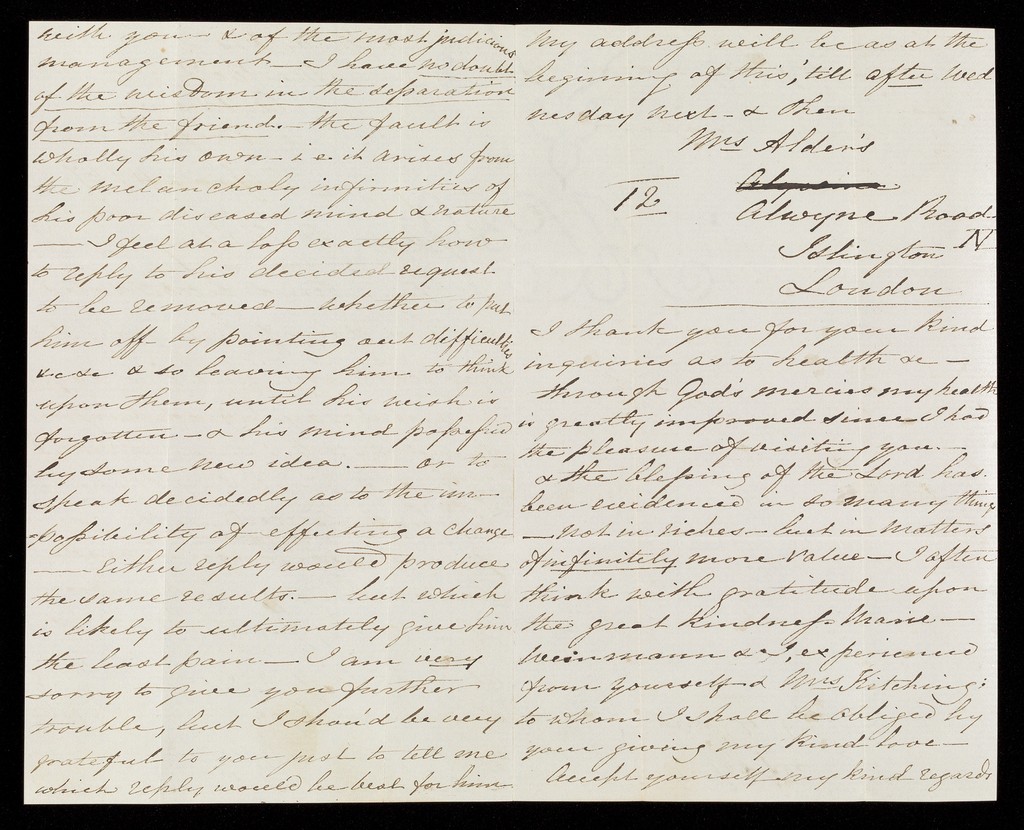 with you - & of the most judicious
management - I have no doubt
of the wisdom in the separation
from the friend. - the fault is
wholly his own - i.e. it arises from
the melancholy infirmities of
his poor diseased mind & nature
— I feel at a loss exactly how
to reply to his decided request
to be removed - whether to put
him off by pointing out difficulties
&c &c & so leaving him to think
upon them, until his wish is
forgotten - & his mind possessed
by some new idea. — or to
speak decidedly as to the im-
-possibility of effecting a change
— Either reply would produce
the same results. - but which
is likely to ultimately give him
the least pain - I am very
sorry to give you further
trouble, but I shou'd be very
grateful to you just to tell me
which reply would be best for him
My address will be as at the
beginning of this, till after Wed
nesday next - & then
Mrs Alder's
12 Alwyne Road
Islington N
London
I thank you for your kind
inquiries as to health &c -
through God's mercies my health
is greatly improved since I had
the pleasure of visiting you -
& the blessing of the Lord has
been evidenced in so many things
- not in riches - but in matters
of infinitely more value - I often
think with gratitude upon
the great kindness Marie -
Weinmann & I, experienced
from yourself & Mrs Kitching:
to whom I shall be obliged by
your giving my kind love -
Accept yourself my kind regards